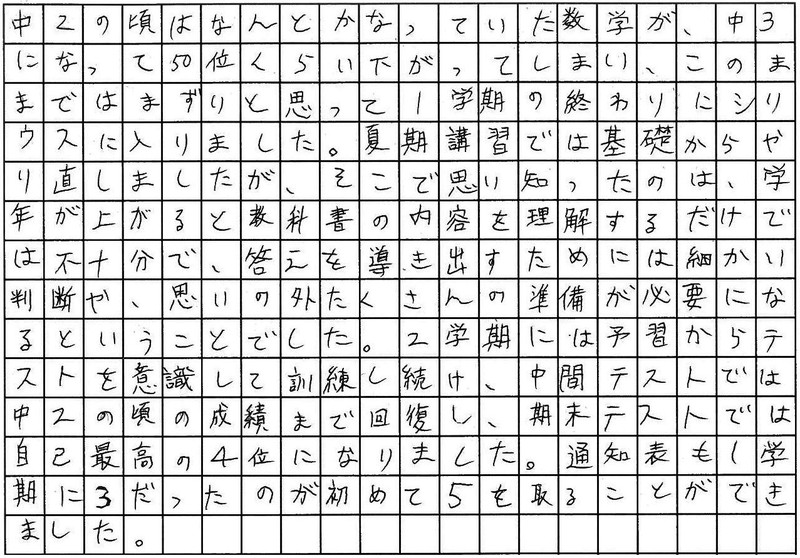 中2の頃はなんとかなっていた数学が、中3
になって50位くらい下がってしまい、このま
まではまずいと思って1学期の終わりにシリ
ウスに入りました。夏期講習では基礎からや
り直しましたが、そこで思い知ったのは、学
年が上がると教科書の内容を理解するだけで
は不十分で、答えを導き出すためには細かい
判断や、思いの外たくさんの準備が必要にな
るということでした。2学期には予習からテ
ストを意識して訓練し続け、中間テストでは
中2の頃の成績まで回復し、期末テストでは
自己最高の4位になりました。通知表も1学
期に3だったのが初めて5を取ることができ
ました。